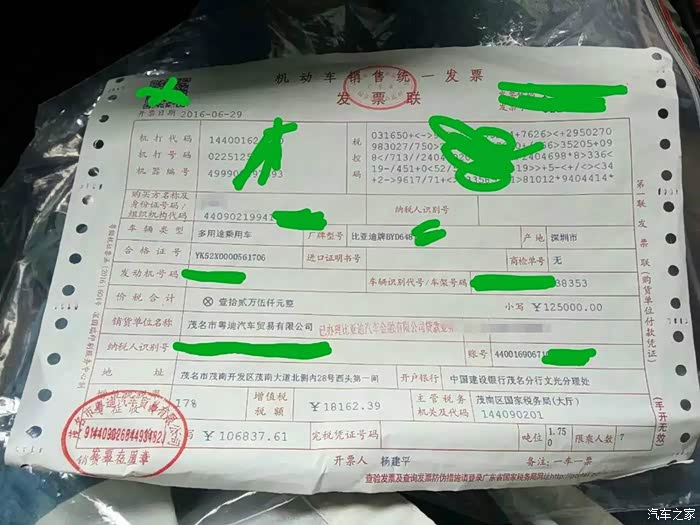 机动车销售统一发票
发票联
开票日期 2016-06-29
机打代码
机打号码
机器编号
税控码
031650+<-
983027/750
8</713//2404
19-/451+0<52/
+2->9617/71+<
+7626><+2950270
36>35205+09
2404698*8>336<
19>>+5-<+/<><34
>81012*9404414*
购买方名称及身份证号码/组织机构代码
44090219947
纳税人识别号
车辆类型 多用途乘用车 厂牌型号 比亚迪牌BYD648 产地 深圳市
合格证号 YK52X0000561706 进口证明书号 商检单号 无
发动机号码 车辆识别代号/车架号码 38353
价税合计 ⊗壹拾贰万伍仟元整 小写 ￥125000.00
销货单位名称 茂名市粤迪汽车贸易有限公司 已办理比亚迪汽车金融有限公司贷款业
纳税人识别号 账号 44001690671
地址 茂名市茂南开发区茂南大道北侧内28号西头第一间 开户银行 中国建设银行茂名分行文光分理处
17% 增值税税额 ￥18162.39 主管税务机关及代码 茂南区国家税务局(大厅) 144090201
写 ￥106837.61 完税凭证号码 吨位 1.750 限乘人数 7
开票人 杨建平 备注:一车一票
查验发票及查询发票防伪措施请登录广东省国家税务局网址
第一联 发票联 (购货单位付款凭证)
(手开无效)
茂名市粤迪汽车贸易有限公司
发票专用章
汽车之家